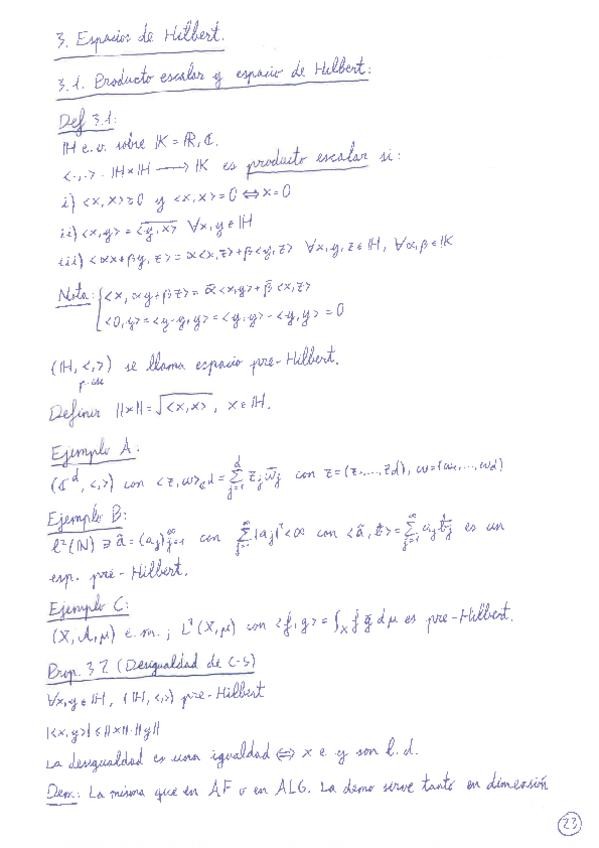 3. Espacios de Hilbert.
3.1. Producto escalar y espacio de Hilbert:
Def 3.1:
ℍ e.v. sobre 𝕂 = ℝ, ℂ.
<·,·> : ℍ×ℍ ⟶ 𝕂 es producto escalar si:
i) <x,x> ≥ 0 y <x,x> = 0 ⇔ x = 0
ii) <x,y> = \overline{<y,x>} ∀x,y ∈ ℍ
iii) <αx+βy, z> = α<x,z> + β<y,z> ∀x,y,z ∈ ℍ, ∀α,β ∈ 𝕂
Nota: { <x, αy+βz> = ᾱ<x,y> + β̄<x,z>
<0,y> = <y-y,y> = <y,y> - <y,y> = 0
(ℍ, <,>) se llama espacio pre-Hilbert.
p. esc
Definir ||x|| = √<x,x>, x ∈ ℍ.
Ejemplo A:
(ℂ^d, <,>) con <z,w>_{ℂ^d} = ∑_{j=1}^{d} z_j \overline{w_j} con z = (z₁,...,z_d), w = (w₁,...,w_d)
Ejemplo B:
ℓ²(ℕ) ∋ ã = (a_j)_{j=1}^∞ con ∑_{j=1}^∞ |a_j|² < ∞ con <ã, b̃> = ∑_{j=1}^∞ a_j \overline{b_j} es un
esp. pre-Hilbert.
Ejemplo C:
(X, A, μ) e.m. ; L²(X,μ) con <f,g> = ∫_X f ḡ dμ es pre-Hilbert.
Prop. 3.2 (Desigualdad de C-S)
∀x,y ∈ ℍ, (ℍ, <,>) pre-Hilbert
|<x,y>| ≤ ||x||·||y||
La desigualdad es una igualdad ⇔ x e y son l.d.
Dem.: La misma que en AF o en ALG. La demo sirve tanto en dimensión
23